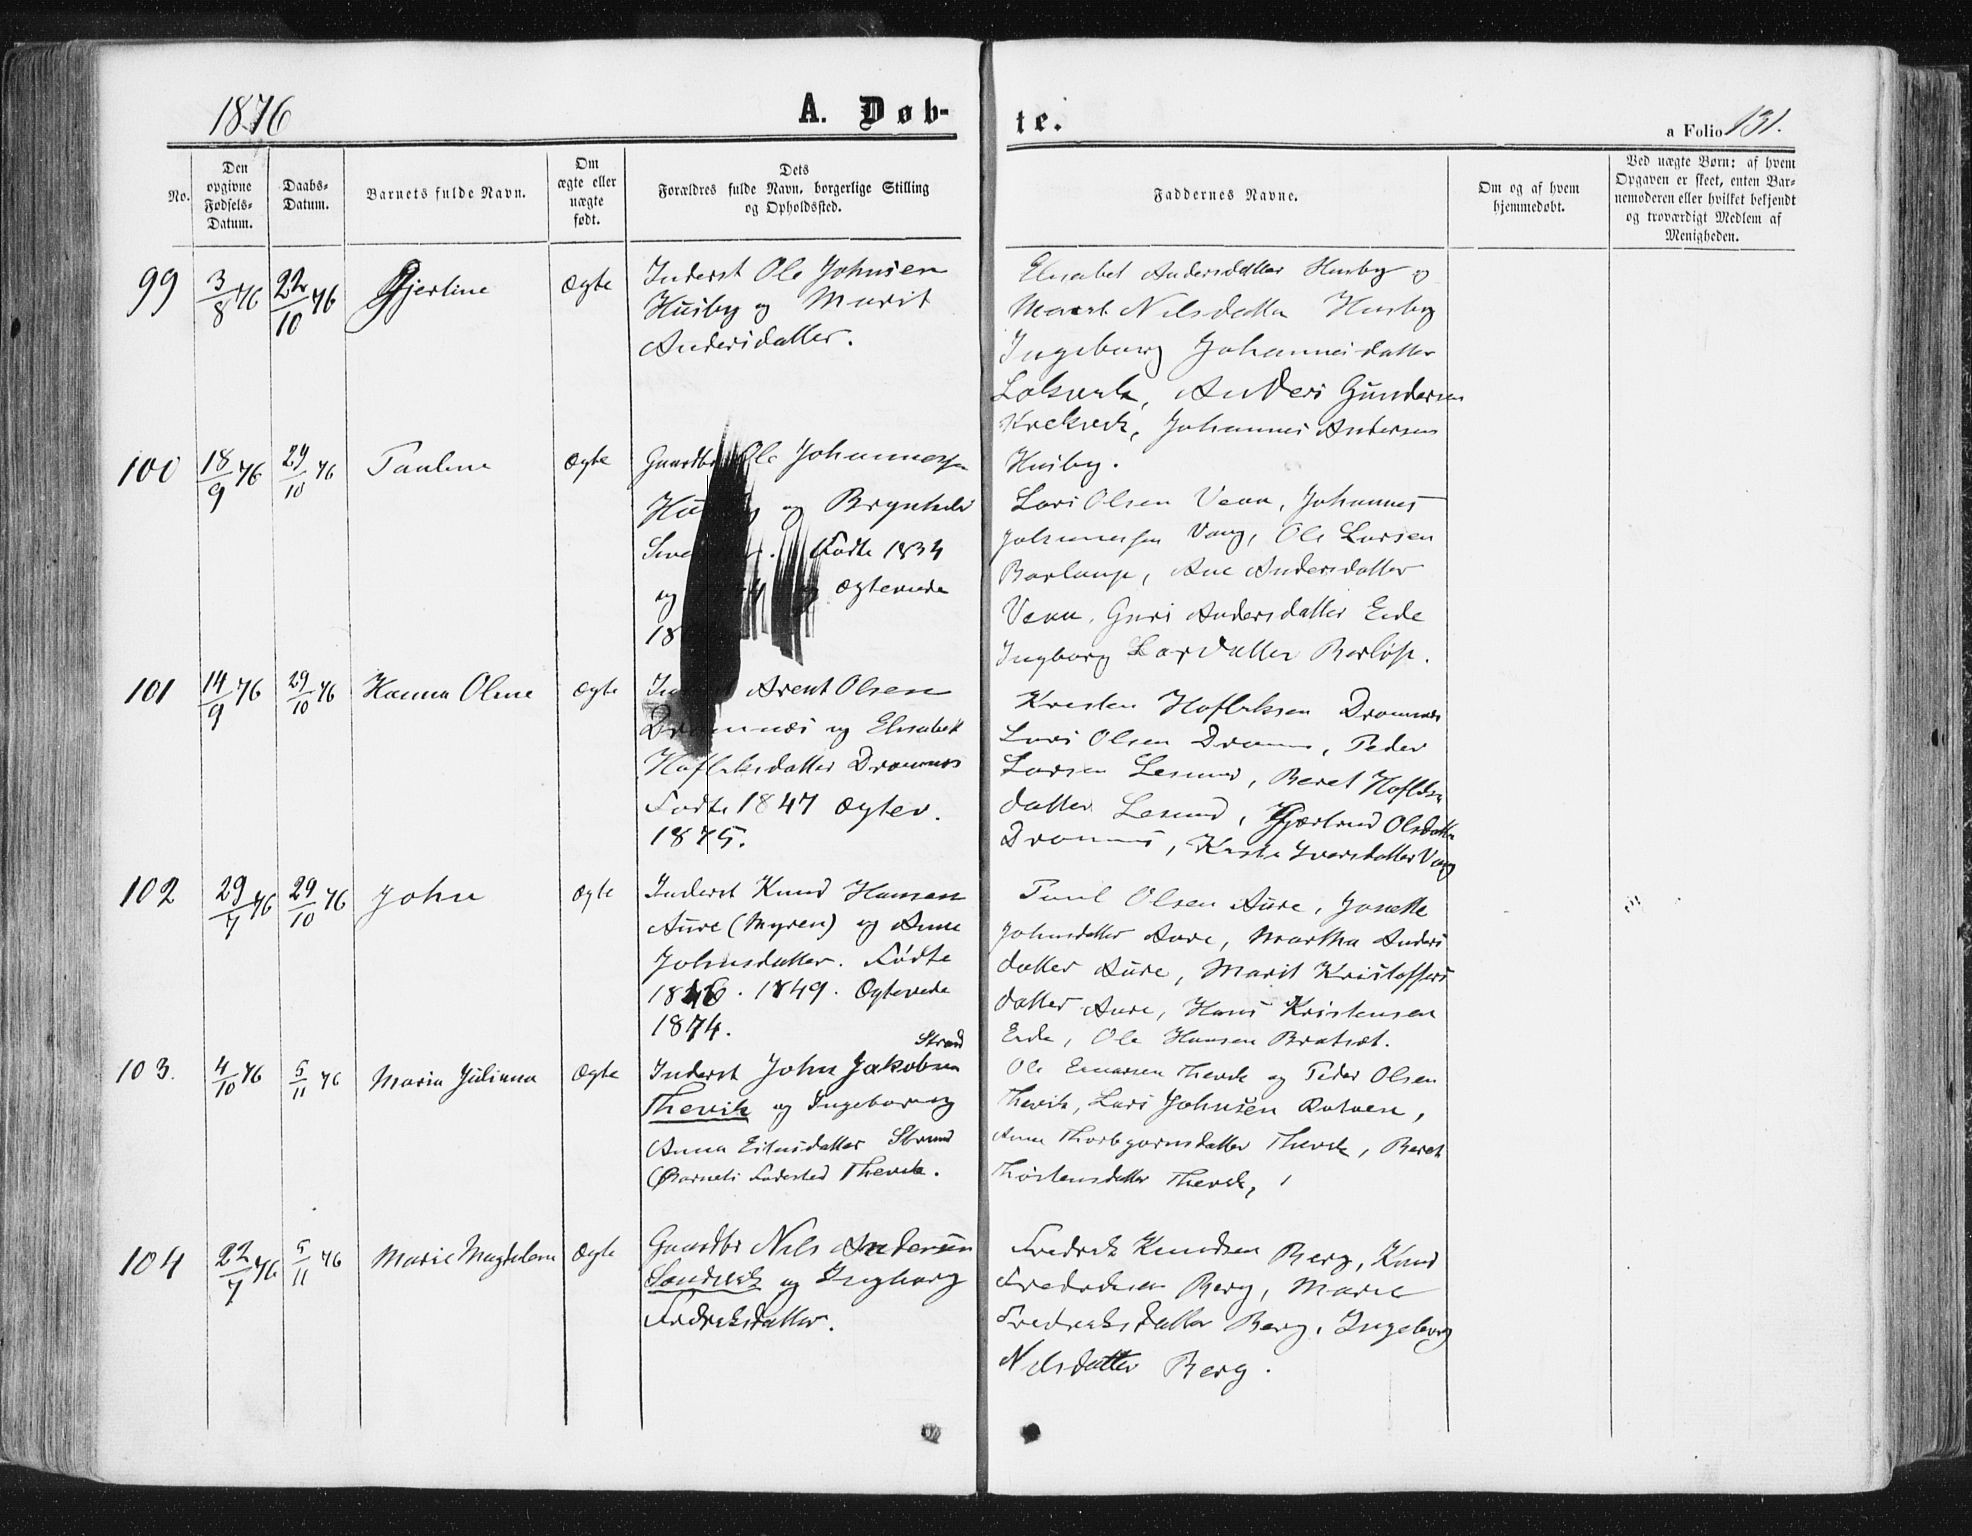 1876
A. Døb-
te.
a Folio 131.
No.
Den opgivne Fødsels-Datum.
Daabs-Datum.
Barnets fulde Navn.
Om ægte eller uægte født.
Dets Forældres fulde Navn, borgerlige Stilling og Opholdssted.
Faddernes Navne.
Om og af hvem hjemmedøbt.
Ved uægte Børn: af hvem Opgaven er skeet, enten Barnemoderen eller hvilket bekjendt og troværdigt Medlem af Menigheden.
99 3/8 76 22/10 76 Gjertine Ægte
Inderst Ole Johnsen
Husby og Marit
Andersdatter.
Elisabet Andersdatter Husby og
Marit Nilsdatter Husby
Ingeborg Johannesdatter
Anders Gundersen
Johannes Andersen
Husby.
100 18/9 76 29/10 76 Pauline Ægte
Gaardbr Ole Johannessen
og Brynhild
Fødte 1834
og Ægteviede
18
Lars Olsen Vean, Johannes
Johannessen Vaag, Ole Larsen
Ane Andersdatter
Vean, Guri Andersdatter Eide
Ingborg Larsdatter
101 14/9 76 29/10 76 Hanna Oline Ægte
Arent Olsen
Dromnæs og Elisabet
Dromnes
Fødte 1847 Ægtev.
1875.
Kristen Dromnes
Lars Olsen Peder
Larsen Lesund, Beret
datter Lesund, Gjertrud Olsdatter
Iversdatter Vaag
102 29/7 76 29/10 76 John Ægte
Inderst Knud Hansen
Aure (Myren) og Anne
Johnsdatter. Fødte
1846. 1849. Ægteviede
1874.
Poul Olsen Aure, Jonette
Johnsdatter Aure, Martha Anders
datter Aure, Marit Kristoffers
datter Aure, Hans Kristensen
Eide, Ole Hansen Bratset.
103. 4/10 76 5/11 76 Maria Juliana Ægte
Strand
Inderst John Jakobsen
Thevik og Ingeborg
Anna Eilusdatter Strand
(Barnets Fødested Thevik.
Ole Einarsen Thevik og Peder Olsen
Thevik, Lars Johnsen
Anne Thorbjørnsdatter Thevik, Beret
Thostensdatter Thevik,
104 22/7 76 5/11 76 Marie Magdalena Ægte
Gaardbr Nils Andersen
Sandvik og Ingborg
Fredriksdatter.
Fredrik Knudsen Berg, Knud
Fredriksen Berg, Marie
Fredriksdatter Berg, Ingeborg
Nilsdatter Berg.